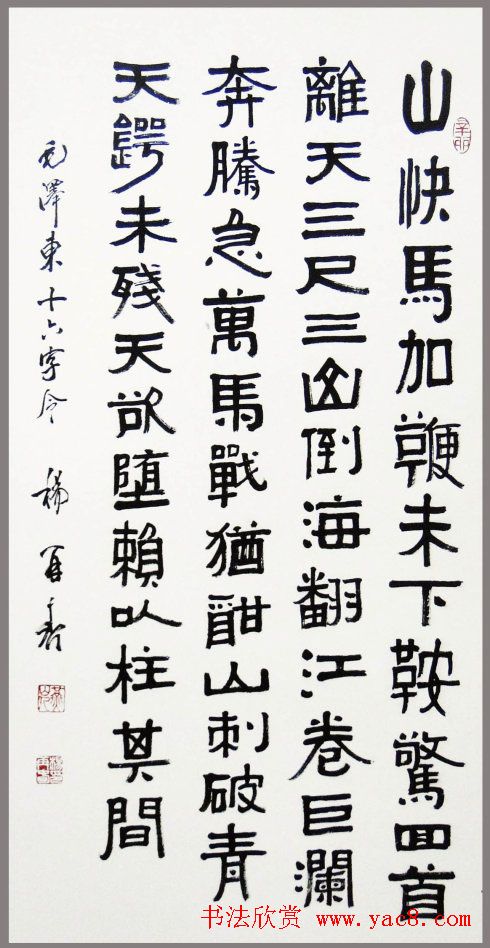 山快馬加鞭未下鞍驚回首
離天三尺三山倒海翻江卷巨瀾
奔騰急萬馬戰猶酣山刺破青
天鍔未殘天欲墮賴以柱其間
毛澤東十六字令 楊再春
辛卯
书法欣赏 www.yac8.com